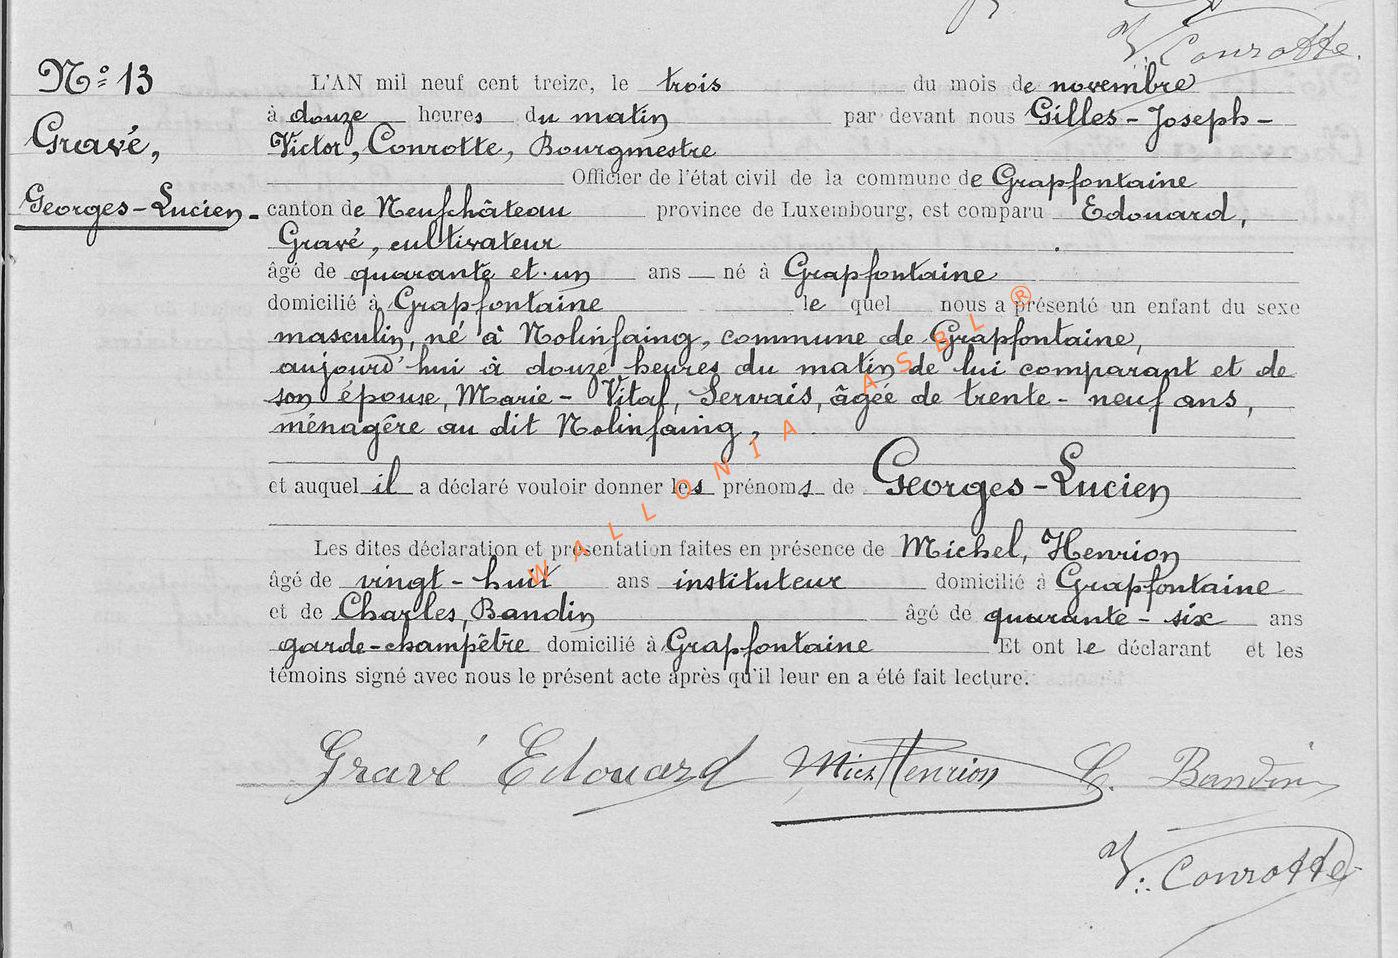 V. Conrotte.
N° 13
L'AN mil neuf cent treize, le trois du mois de novembre
à douze heures du matin par devant nous Gilles-Joseph-
Gravé,
Victor, Conrotte, Bourgmestre
Officier de l'état civil de la commune de Grapfontaine
Georges-Lucien-
canton de Neufchâteau province de Luxembourg, est comparu Edouard,
Gravé, cultivateur
âgé de quarante et un ans né à Grapfontaine
domicilié à Grapfontaine le quel nous a présenté un enfant du sexe
masculin, né à Nolinfaing, commune de Grapfontaine,
aujourd'hui à douze heures du matin de lui comparant et de
son épouse, Marie-Vital, Servais, âgée de trente-neuf ans,
ménagère au dit Nolinfaing,
et auquel il a déclaré vouloir donner les prénoms de Georges-Lucien
Les dites déclaration et présentation faites en présence de Michel, Henrion
âgé de vingt-huit ans instituteur domicilié à Grapfontaine
et de Charles, Bandin âgé de quarante-six ans
garde-champêtre domicilié à Grapfontaine Et ont le déclarant et les
témoins signé avec nous le présent acte après qu'il leur en a été fait lecture.
WALLONIA ASBL ®
Gravé Edouard Mich Henrion C. Bandin
V. Conrotte